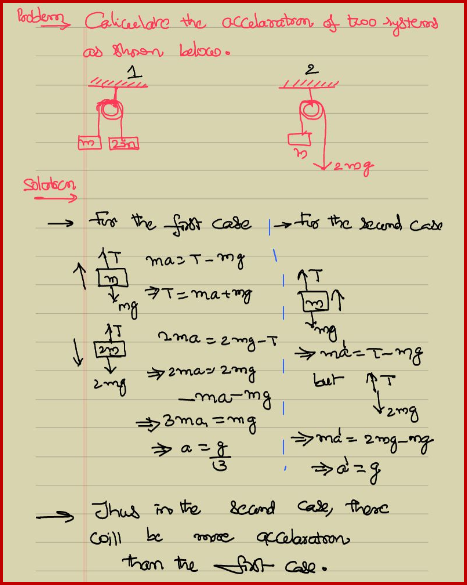 Problem → Calculate the accelaration of two systems
as shown below.
1
2
m
2m
m
2mg
Solution →
→ For the first case
→ For the second case
T
m
mg
ma = T - mg
⇒ T = ma + mg
T
2m
2mg
2ma = 2mg - T
⇒ 2ma = 2mg
- ma - mg
⇒ 3ma = mg
⇒ a = g/3
T
m
mg
⇒ ma' = T - mg
but
T
2mg
⇒ ma' = 2mg - mg
⇒ a' = g
→ Thus in the second case, there
will be more accelaration
than the first case.